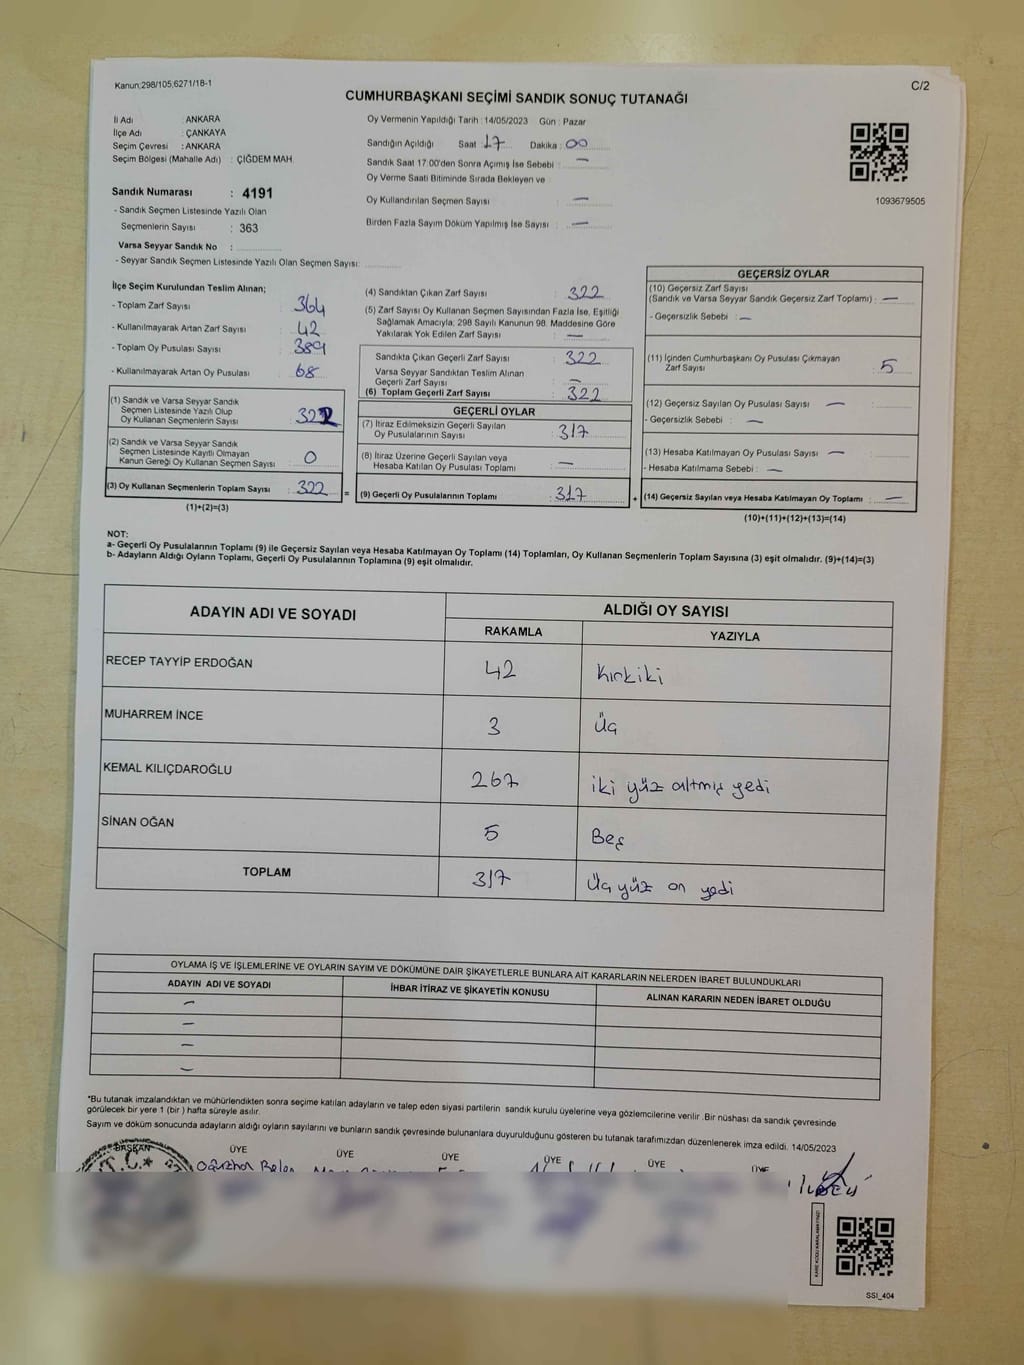 Kanun;298/105,6271/18-1
C/2
CUMHURBAŞKANI SEÇİMİ SANDIK SONUÇ TUTANAĞI
İl Adı : ANKARA
İlçe Adı : ÇANKAYA
Seçim Çevresi : ANKARA
Seçim Bölgesi (Mahalle Adı) : ÇİĞDEM MAH.
Sandık Numarası : 4191
- Sandık Seçmen Listesinde Yazılı Olan
Seçmenlerin Sayısı : 363
Varsa Seyyar Sandık No :
- Seyyar Sandık Seçmen Listesinde Yazılı Olan Seçmen Sayısı:
Oy Vermenin Yapıldığı Tarih : 14/05/2023 Gün : Pazar
Sandığın Açıldığı Saat : 17 Dakika : 00
Sandık Saat 17:00'den Sonra Açımış İse Sebebi : —
Oy Verme Saati Bitiminde Sırada Bekleyen ve
Oy Kullandırılan Seçmen Sayısı : —
Birden Fazla Sayım Döküm Yapılmış İse Sayısı : —
1093679505
İlçe Seçim Kurulundan Teslim Alınan;
- Toplam Zarf Sayısı : 364
- Kullanılmayarak Artan Zarf Sayısı : 42
- Toplam Oy Pusulası Sayısı : 389
- Kullanılmayarak Artan Oy Pusulası : 68
(1) Sandık ve Varsa Seyyar Sandık
Seçmen Listesinde Yazılı Olup
Oy Kullanan Seçmenlerin Sayısı : 322
(2) Sandık ve Varsa Seyyar Sandık
Seçmen Listesinde Kayıtlı Olmayan
Kanun Gereği Oy Kullanan Seçmen Sayısı : 0
(3) Oy Kullanan Seçmenlerin Toplam Sayısı : 322 =
(1)+(2)=(3)
(4) Sandıktan Çıkan Zarf Sayısı : 322
(5) Zarf Sayısı Oy Kullanan Seçmen Sayısından Fazla İse, Eşitliği
Sağlamak Amacıyla, 298 Sayılı Kanunun 98. Maddesine Göre
Yakılarak Yok Edilen Zarf Sayısı : —
Sandıkta Çıkan Geçerli Zarf Sayısı : 322
Varsa Seyyar Sandıktan Teslim Alınan
Geçerli Zarf Sayısı : —
(6) Toplam Geçerli Zarf Sayısı : 322
GEÇERLİ OYLAR
(7) İtiraz Edilmeksizin Geçerli Sayılan
Oy Pusulalarının Sayısı : 317
(8) İtiraz Üzerine Geçerli Sayılan veya
Hesaba Katılan Oy Pusulası Toplamı : —
(9) Geçerli Oy Pusulalarının Toplamı : 317 +
GEÇERSİZ OYLAR
(10) Geçersiz Zarf Sayısı
(Sandık ve Varsa Seyyar Sandık Geçersiz Zarf Toplamı) : —
- Geçersizlik Sebebi : —
(11) İçinden Cumhurbaşkanı Oy Pusulası Çıkmayan
Zarf Sayısı : 5
(12) Geçersiz Sayılan Oy Pusulası Sayısı : —
- Geçersizlik Sebebi : —
(13) Hesaba Katılmayan Oy Pusulası Sayısı : —
- Hesaba Katılmama Sebebi : —
(14) Geçersiz Sayılan veya Hesaba Katılmayan Oy Toplamı : —
(10)+(11)+(12)+(13)=(14)
NOT:
a- Geçerli Oy Pusulalarının Toplamı (9) ile Geçersiz Sayılan veya Hesaba Katılmayan Oy Toplamı (14) Toplamları, Oy Kullanan Seçmenlerin Toplam Sayısına (3) eşit olmalıdır. (9)+(14)=(3)
b- Adayların Aldığı Oyların Toplamı, Geçerli Oy Pusulalarının Toplamına (9) eşit olmalıdır.
ADAYIN ADI VE SOYADI ALDIĞI OY SAYISI
RAKAMLA YAZIYLA
RECEP TAYYİP ERDOĞAN 42 kırkiki
MUHARREM İNCE 3 Üç
KEMAL KILIÇDAROĞLU 267 iki yüz altmış yedi
SİNAN OĞAN 5 Beş
TOPLAM 317 Üç yüz on yedi
OYLAMA İŞ VE İŞLEMLERİNE VE OYLARIN SAYIM VE DÖKÜMÜNE DAİR ŞİKAYETLERLE BUNLARA AİT KARARLARIN NELERDEN İBARET BULUNDUKLARI
ADAYIN ADI VE SOYADI İHBAR İTİRAZ VE ŞİKAYETİN KONUSU ALINAN KARARIN NEDEN İBARET OLDUĞU
—
—
—
—
*Bu tutanak imzalandıktan ve mühürlendikten sonra seçime katılan adayların ve talep eden siyasi partilerin sandık kurulu üyelerine veya gözlemcilerine verilir .Bir nüshası da sandık çevresinde
görülecek bir yere 1 (bir ) hafta süreyle asılır.
Sayım ve döküm sonucunda adayların aldığı oyların sayılarını ve bunların sandık çevresinde bulunanlara duyurulduğunu gösteren bu tutanak tarafımızdan düzenlenerek imza edildi. 14/05/2023
BAŞKAN ÜYE ÜYE ÜYE ÜYE ÜYE ÜYE
T.C.
Oğuzhan
SSI_404